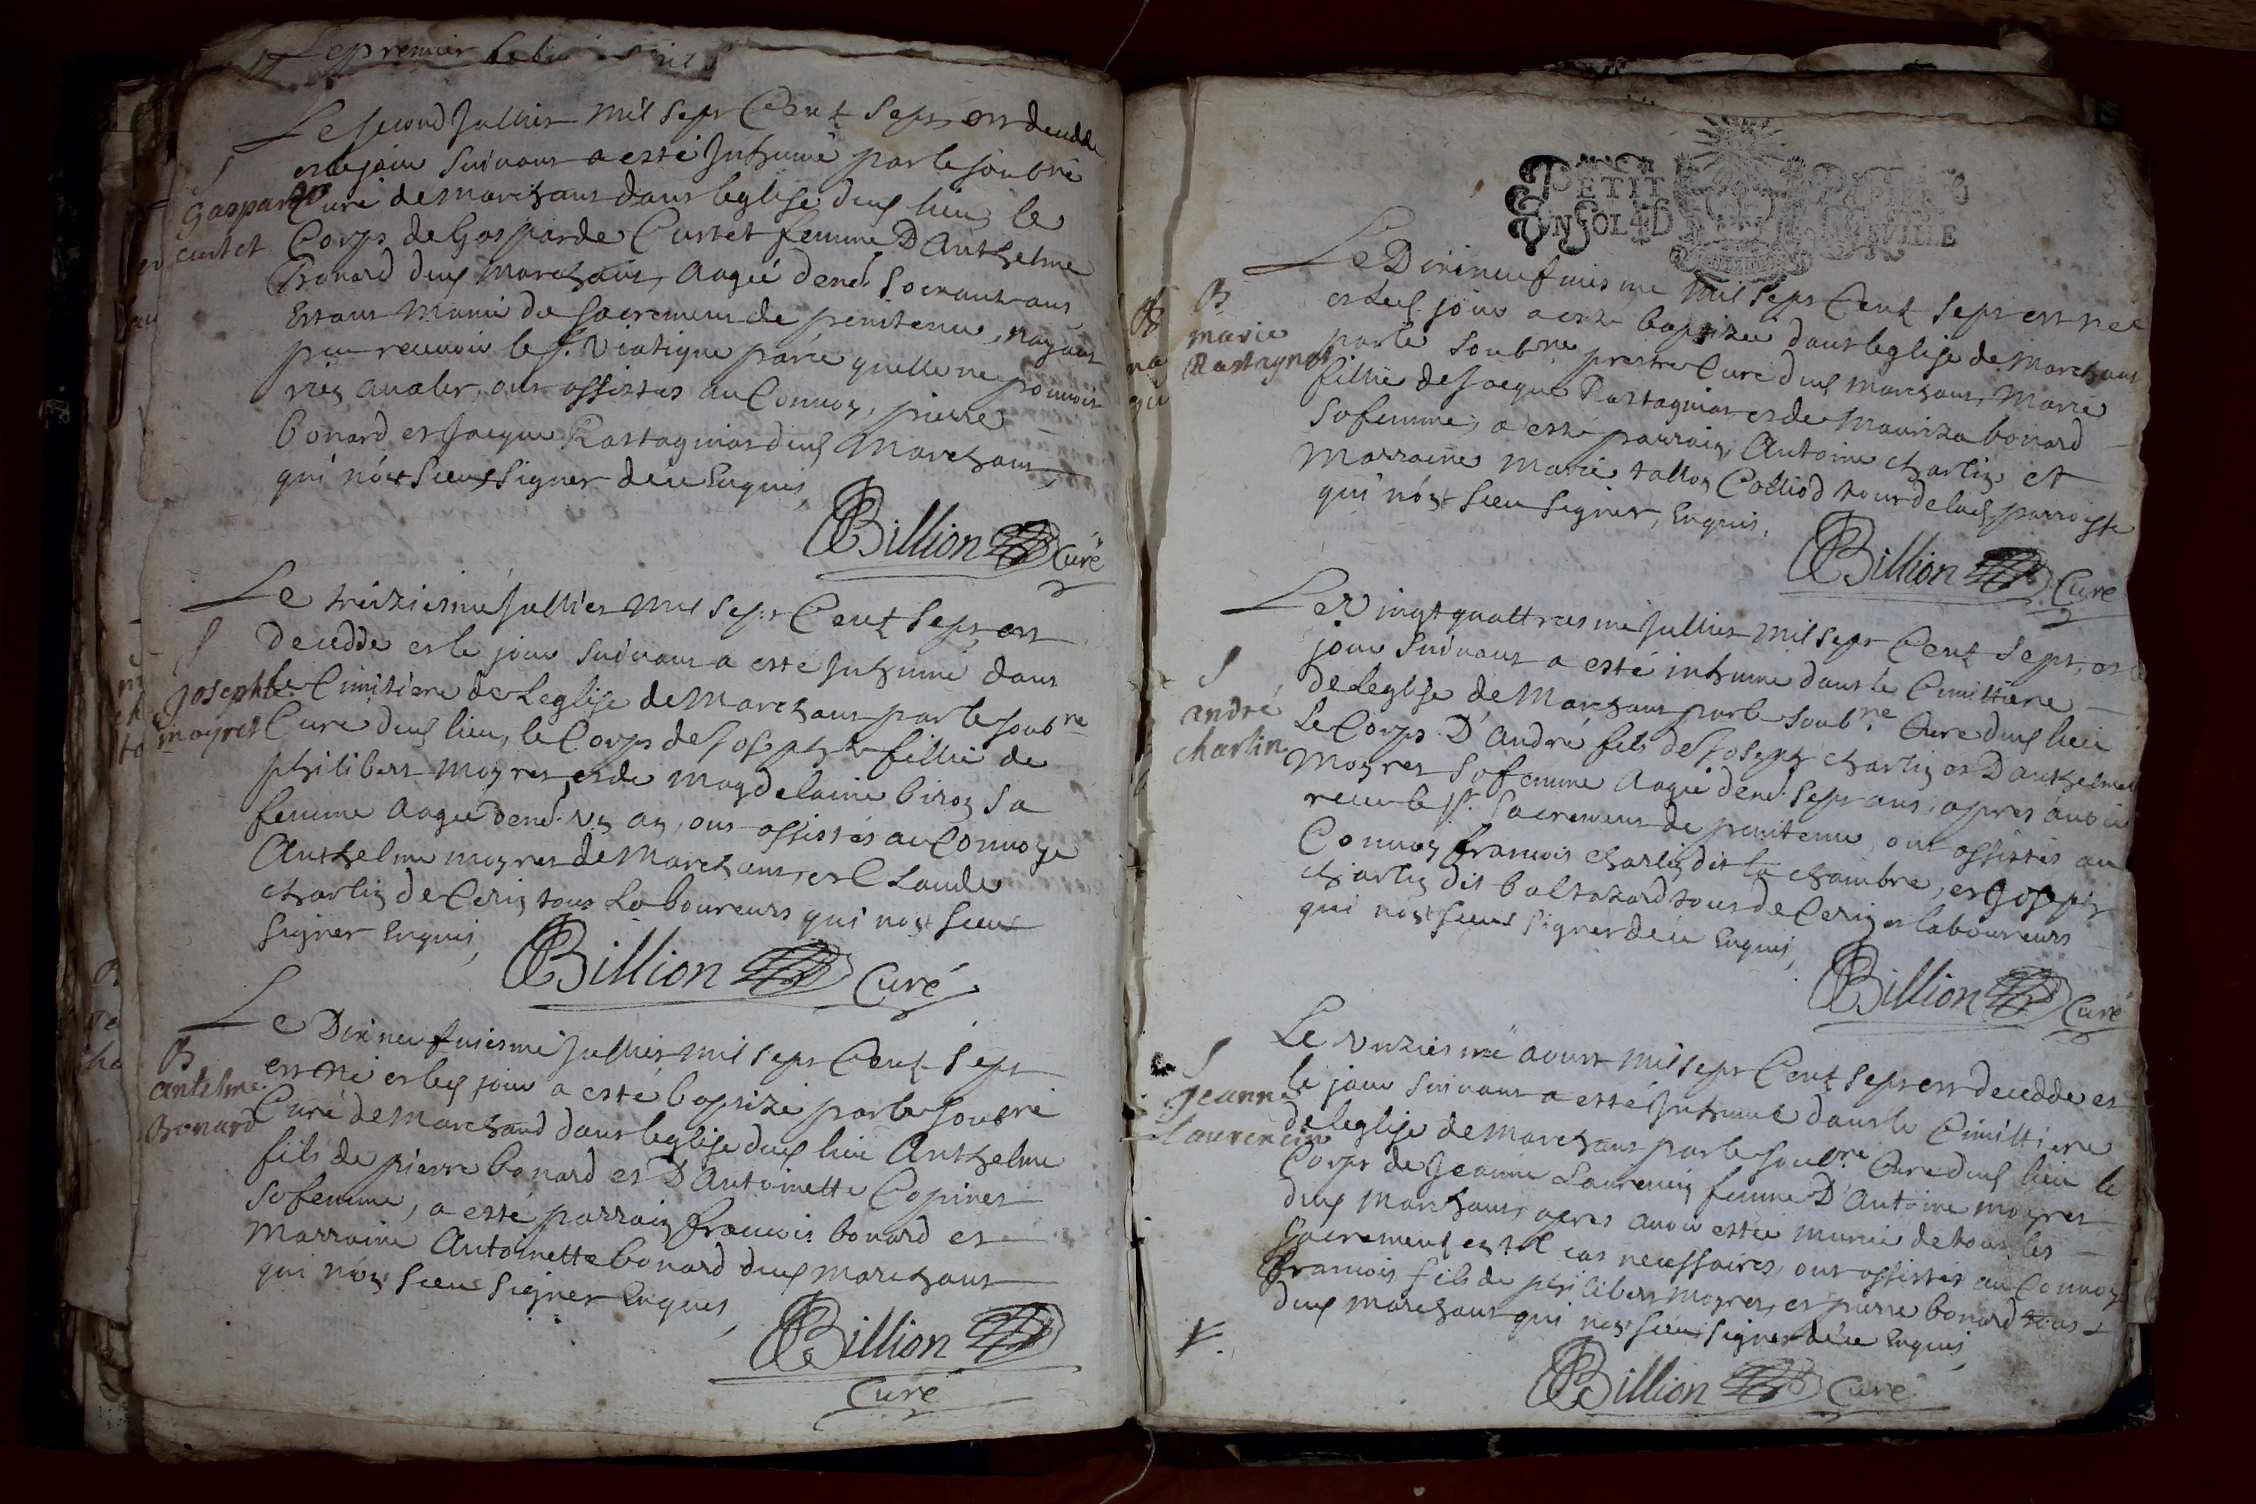 Le premier
Le second Jullier mil sept Cent sept est decedde
et le jour suivant a esté Inhumé par le soubné
S
Gasparde
curtet
Curé de Marchant dans leglise dud lieu le
Corps de Gasparde Curtet femme D'Anthelme
Bonard dud Marchant, Aagée d'end. soixant ans
Estant Munie du sacrement de penitence, nayant
peu recevoir le s. Viatique parce quelle ne pouvoit
rien avaler, ont assistés au Convoy, pierre
bonard et Jacque Rastagniat dud Marchant
qui n'ont sceus signer de ce Enquis,
Billion Curé
Le treiziesme Jullier mil sept Cent sept est
decedde et le jour suivant a esté Inhumé dans
S
Josephte
moyret
le Cimitiere de Leglise de Marchant par le soubne
Curé dud lieu, le Corps de Josephte fillie de
philibert Moyret et de Magdelaine biron sa
femme Aagée d'end. un an, ont assistés au Convoye
Anthelme moyret de Marchant, et Claude
charlin de Cerin tous Laboureurs qui nont sceus
signer Enquis,
Billion Curé
Le Dixneufviesme Jullier mil sept Cent sept
B
antelme
Bonard
est né et led jour a esté baptizé par le soubné
Curé de Marchand dans leglise dud lieu Anthelme
fils de pierre bonard et D'Antoinette Copinet
sa femme, a esté parrain francois bonard et
Marraine Antoinette bonard dud Marchant
qui n'ont sceus signer Enquis,
Billion
Curé
PETIT PAPIER
UN SOL 4D
Le Dixneufviesme mil sept Cent sept est née
B
marie
Rastagnat
et led. jour a este baptizée dans leglise de Marchant
par le soubne prestre Curé dud Marchant, Marie
fillie de Jacque Rastagniat et de Mauriza bonard
sa femme, a esté parrain, Antoine charlin et
Marraine Marie tallon Colliod tour de lad parroisse
qui n'ont sceu signer, Enquis,
Billion Curé
Le Vingt quattriesme Jullier mil sept Cent sept, et le
jour suivant a esté inhumé dans le Cimittiere
S
andré
charlin
de Leglise de Marchant par le soubne Curé dud lieu
Le Corps D'André fils de Joseph charlin et D'anthelme
Moyret sa femme Aagé d'end. sept ans, apres avoir
receu le st. sacrement de penitence, ont assistés au
Convoy francois charlin dit la chambre, et Joseph
charlin dit baltazard tous de Cerin et laboureurs
qui n'ont sceus signer de ce Enquis,
Billion Curé
Le unziesme aoust mil sept Cent sept est decedde et
S
Jeanne
laurencin
le jour suivant a esté Inhumé dans le Cimittiere
de leglise de Marchant par le soubne Curé dud lieu le
Corps de Jeanne Laurencin femme D'Antoine moyret
dud Marchant, apres avoir estée munie de tous les
sacrement en tel cas necessaires, ont assistés au Convoy
francois fils de philibert moyret, et pierre bonard tous
dud Marchant qui nont sceus signer de ce Enquis,
Billion Curé